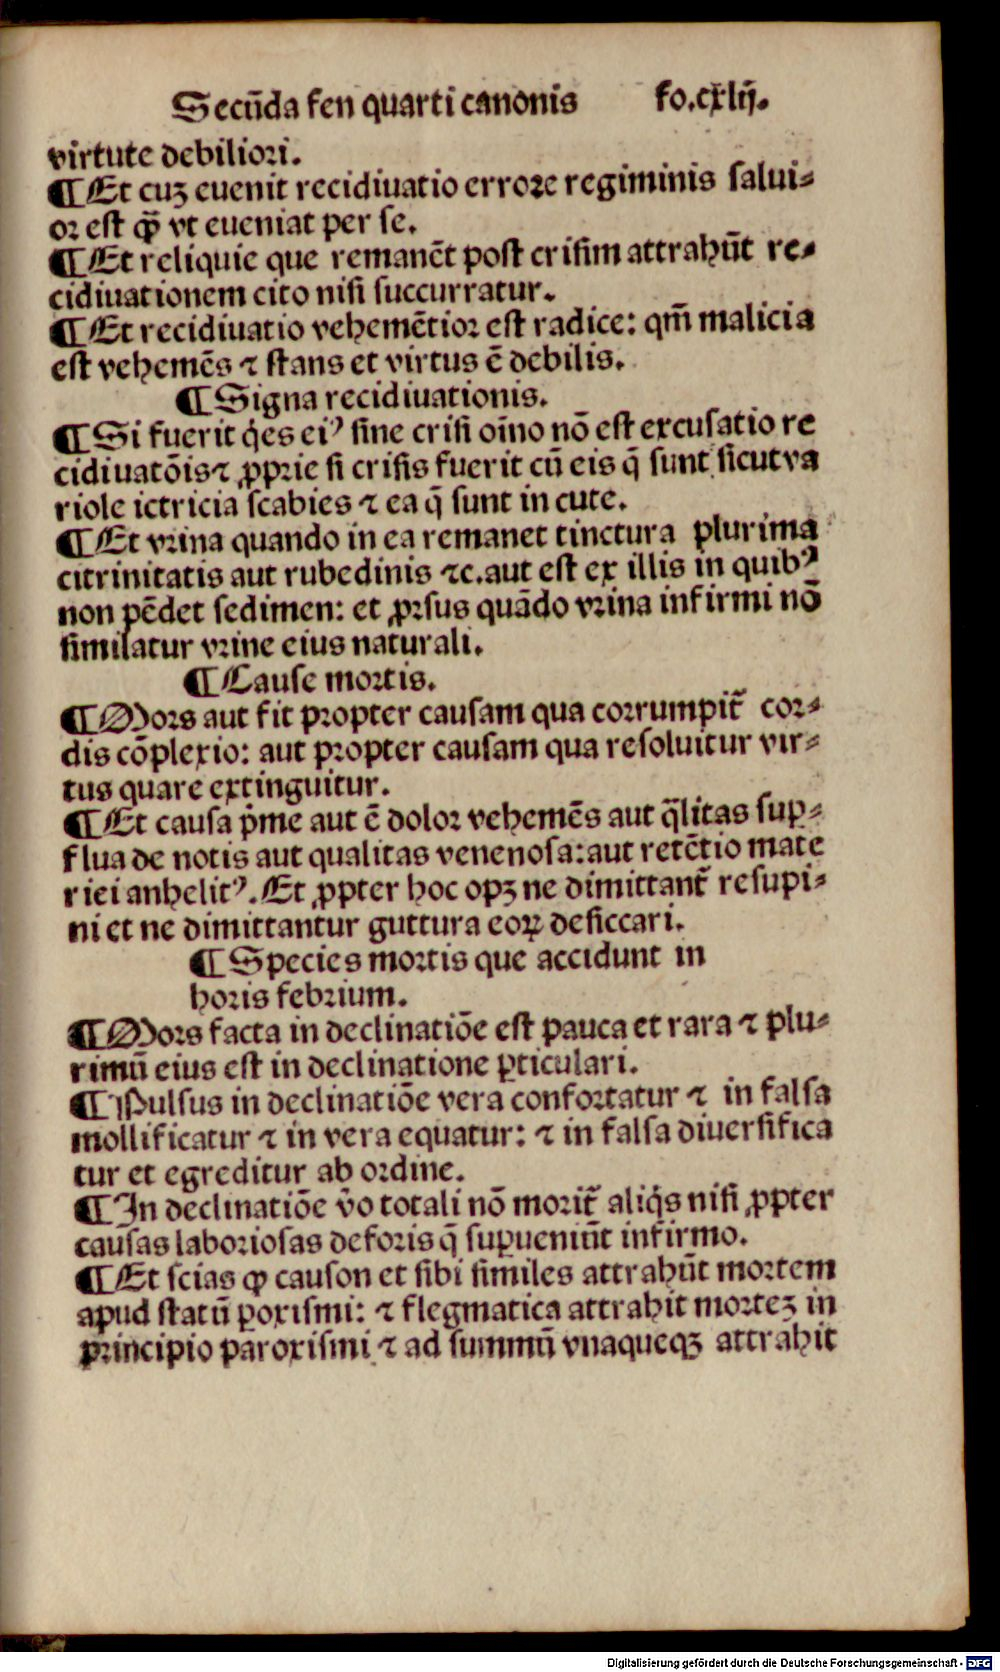 Secũda fen quarti canonis fo.cxlij.
virtute debiliori.
¶Et cuꝫ euenit recidiuatio errore regiminis salui⸗
or est ꝙ̃ vt eueniat per se.
¶Et reliquie que remanẽt post crisim attrahũt re⸗
cidiuationem cito nisi succurratur.
¶Et recidiuatio vehemẽtior est radice: qm̃ malicia
est vehemẽs ⁊ stans et virtus ẽ debilis.
¶Signa recidiuationis.
¶Si fuerit q̇es eiꝰ sine crisi oĩno nõ est excusatio re
cidiuatõis⁊ ꝓprie si crisis fuerit cũ eis q̃ sunt sicut va
riole ictricia scabies ⁊ ea q̃ sunt in cute.
¶Et vrina quando in ea remanet tinctura plurima
citrinitatis aut rubedinis ⁊c.aut est ex illis in quibꝰ
non pẽdet sedimen: et ꝓrsus quãdo vrina infirmi nõ
similatur vrine eius naturali.
¶Cause mortis.
¶Mors aut fit propter causam qua corrumpit̃ cor⸗
dis cõplexio: aut propter causam qua resoluitur vir⸗
tus quare extinguitur.
¶Et causa p̃me aut ẽ dolor vehemẽs aut q̃litas suꝑ⸗
flua de notis aut qualitas venenosa:aut retẽtio mate
riei anhelitꝰ. Et ꝓpter hoc opꝫ ne dimittant̃ resupi⸗
ni et ne dimittantur guttura eoꝝ desiccari.
¶Species mortis que accidunt in
horis febrium.
¶Mors facta in declinatiõe est pauca et rara ⁊ plu⸗
rimũ eius est in declinatione ꝑticulari.
¶Pulsus in declinatiõe vera confortatur ⁊ in falsa
mollificatur ⁊ in vera equatur: ⁊ in falsa diuersifica
tur et egreditur ab ordine.
¶In declinatiõe ṽo totali nõ morit̃ aliq̇s nisi ꝓpter
causas laboriosas deforis q̃ suꝑueniũt infirmo.
¶Et scias ꝙ causon et sibi similes attrahũt mortem
apud statũ ꝑoxismi: ⁊ flegmatica attrahit morteꝫ in
principio paroxismi ⁊ ad summũ vnaqueqꝫ attrahit
Digitalisierung gefördert durch die Deutsche Forschungsgemeinschaft - DFG